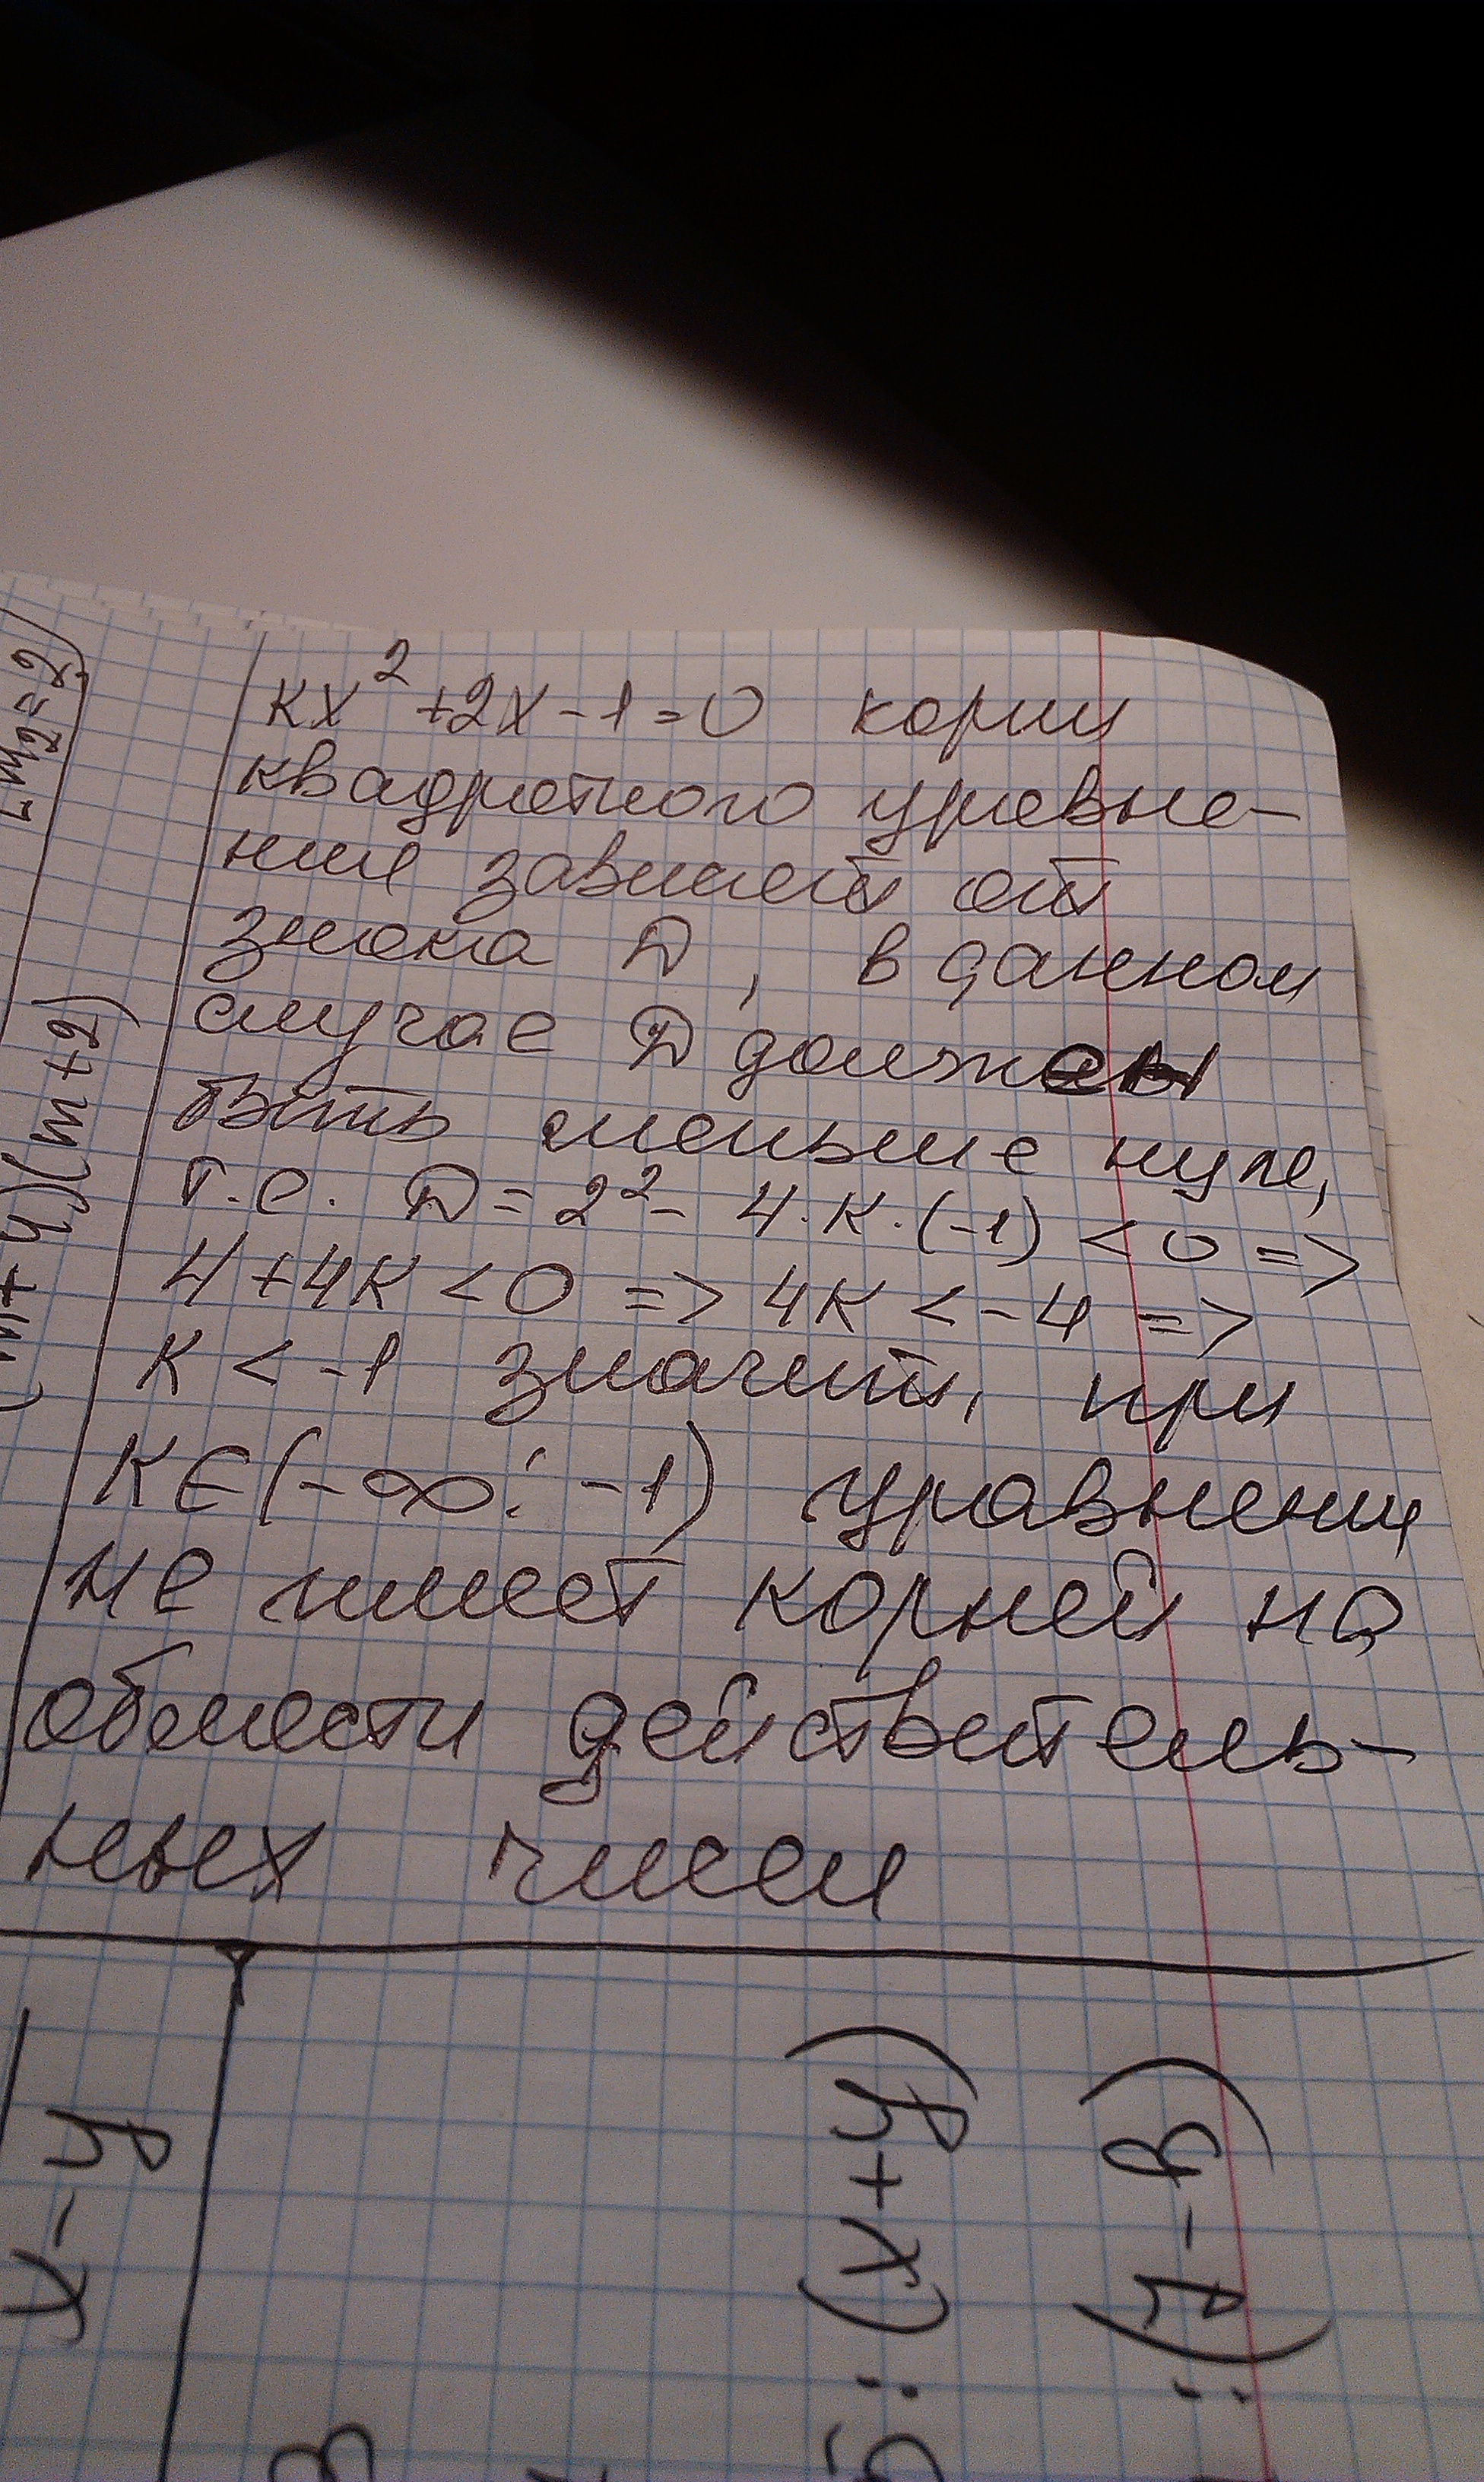 кх² + 2х - 1 = 0 корни
квадратного уравне-
ния зависят от
знака D, в данном
случае D должен
быть меньше нуля,
т.е. D = 2² - 4·к·(-1) < 0 =>
4 + 4к < 0 => 4к < -4 =>
к < -1 значит, при
к ∈ (-∞; -1) уравнение
не имеет корней на
области действитель-
ных чисел
(m+2)
x-y
: (x+y)